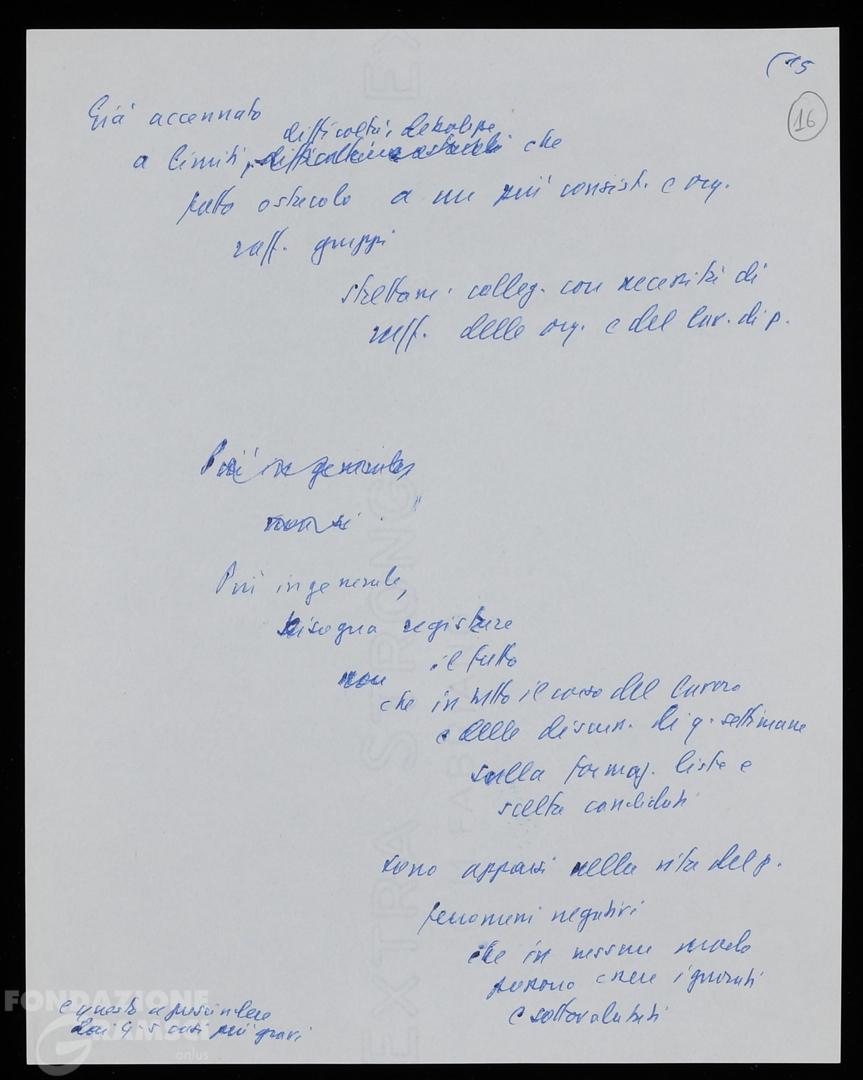 (15
16
Già accennato
difficoltà, debolezze
a limiti, difficoltà e ostacoli che
fatto ostacolo a un più consist. e org.
raff. gruppi
strettam. colleg. con necessità di
raff. delle org. e del lav. di p.
Più in generale,
non si
Più in generale,
bisogna registrare
il fatto
non
che in tutto il corso del lavoro
e delle discuss. di q. settimane
sulla formaz. liste e
scelta candidati
sono apparsi nella vita del p.
fenomeni negativi
che in nessun modo
possono essere ignorati
e sottovalutati
e questo a prescindere
dai 4-5 casi più gravi
FONDAZIONE
GRAMSCI
onlus
EXTRA STRONG
FABRIANO